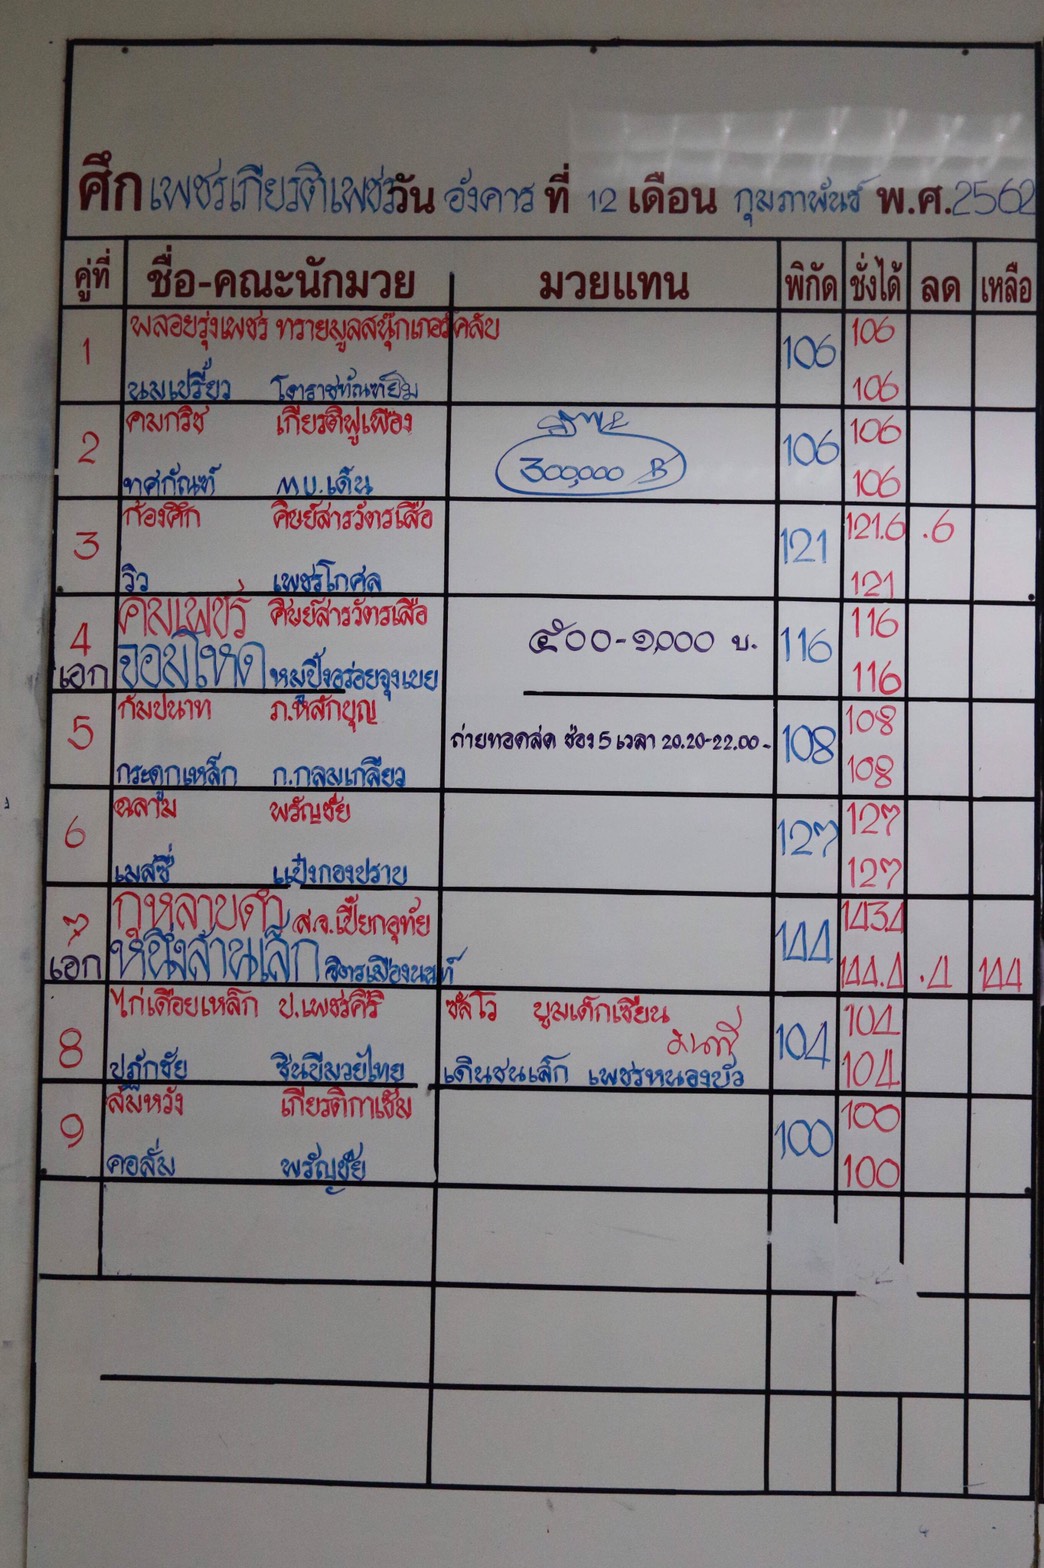 ศึก เพชรเกียรติเพชร วัน อังคาร ที่ 12 เดือน กุมภาพันธ์ พ.ศ. 2562
คู่ที่ ชื่อ-คณะนักมวย มวยแทน พิกัด ชั่งได้ ลด เหลือ
1 พลอยรุ่งเพชร ทรายมูลสนุ๊กเกอร์คลับ 106 106
นมเปรี้ยว 106
2 คมกริช เกียรติฟูเฟื่อง 106 106
ทศกัณฑ์ ไม้เดิ่น 300,000 B 106
3 ก้องศึก ศิษย์สารวัตรเสือ 121 121.6 .6
วิว เพชรโกศล 121
4 คมเพชร ศิษย์สารวัตรเสือ ๕๐๐-๑,๐๐๐ บ. 116 116
เอก จอมโหด หมูปิ้งอร่อยจุงเบย 116
5 กัมปนาท ภ.หลักบุญ ถ่ายทอดสด ช่อง 5 เวลา 20.20-22.00- 108 108
กระดูกเหล็ก ก.กลมเกลียว 108
6 ฉลาม พรัญชัย 127 127
เมสซี่ แป๋งกองปราบ 127
7 กุหลาบดำ ส.จ.เปี๊ยกอุทัย 144 143.4
เอก หนึ่งล้านเล็ก จิตรเมืองนนท์ 144.4 .4 144
8 ไก่เดือยเหล็ก ป.เพชรศิริ ชัลโว บูมเด็กเซียน 104 104
ปฏักชัย จินปีมวยไทย เดินชนเล็ก เพชรหนองบัว 104
9 สมหวัง เกียรติกาแซม 100 100
คอสั้ม พรัญชัย 100